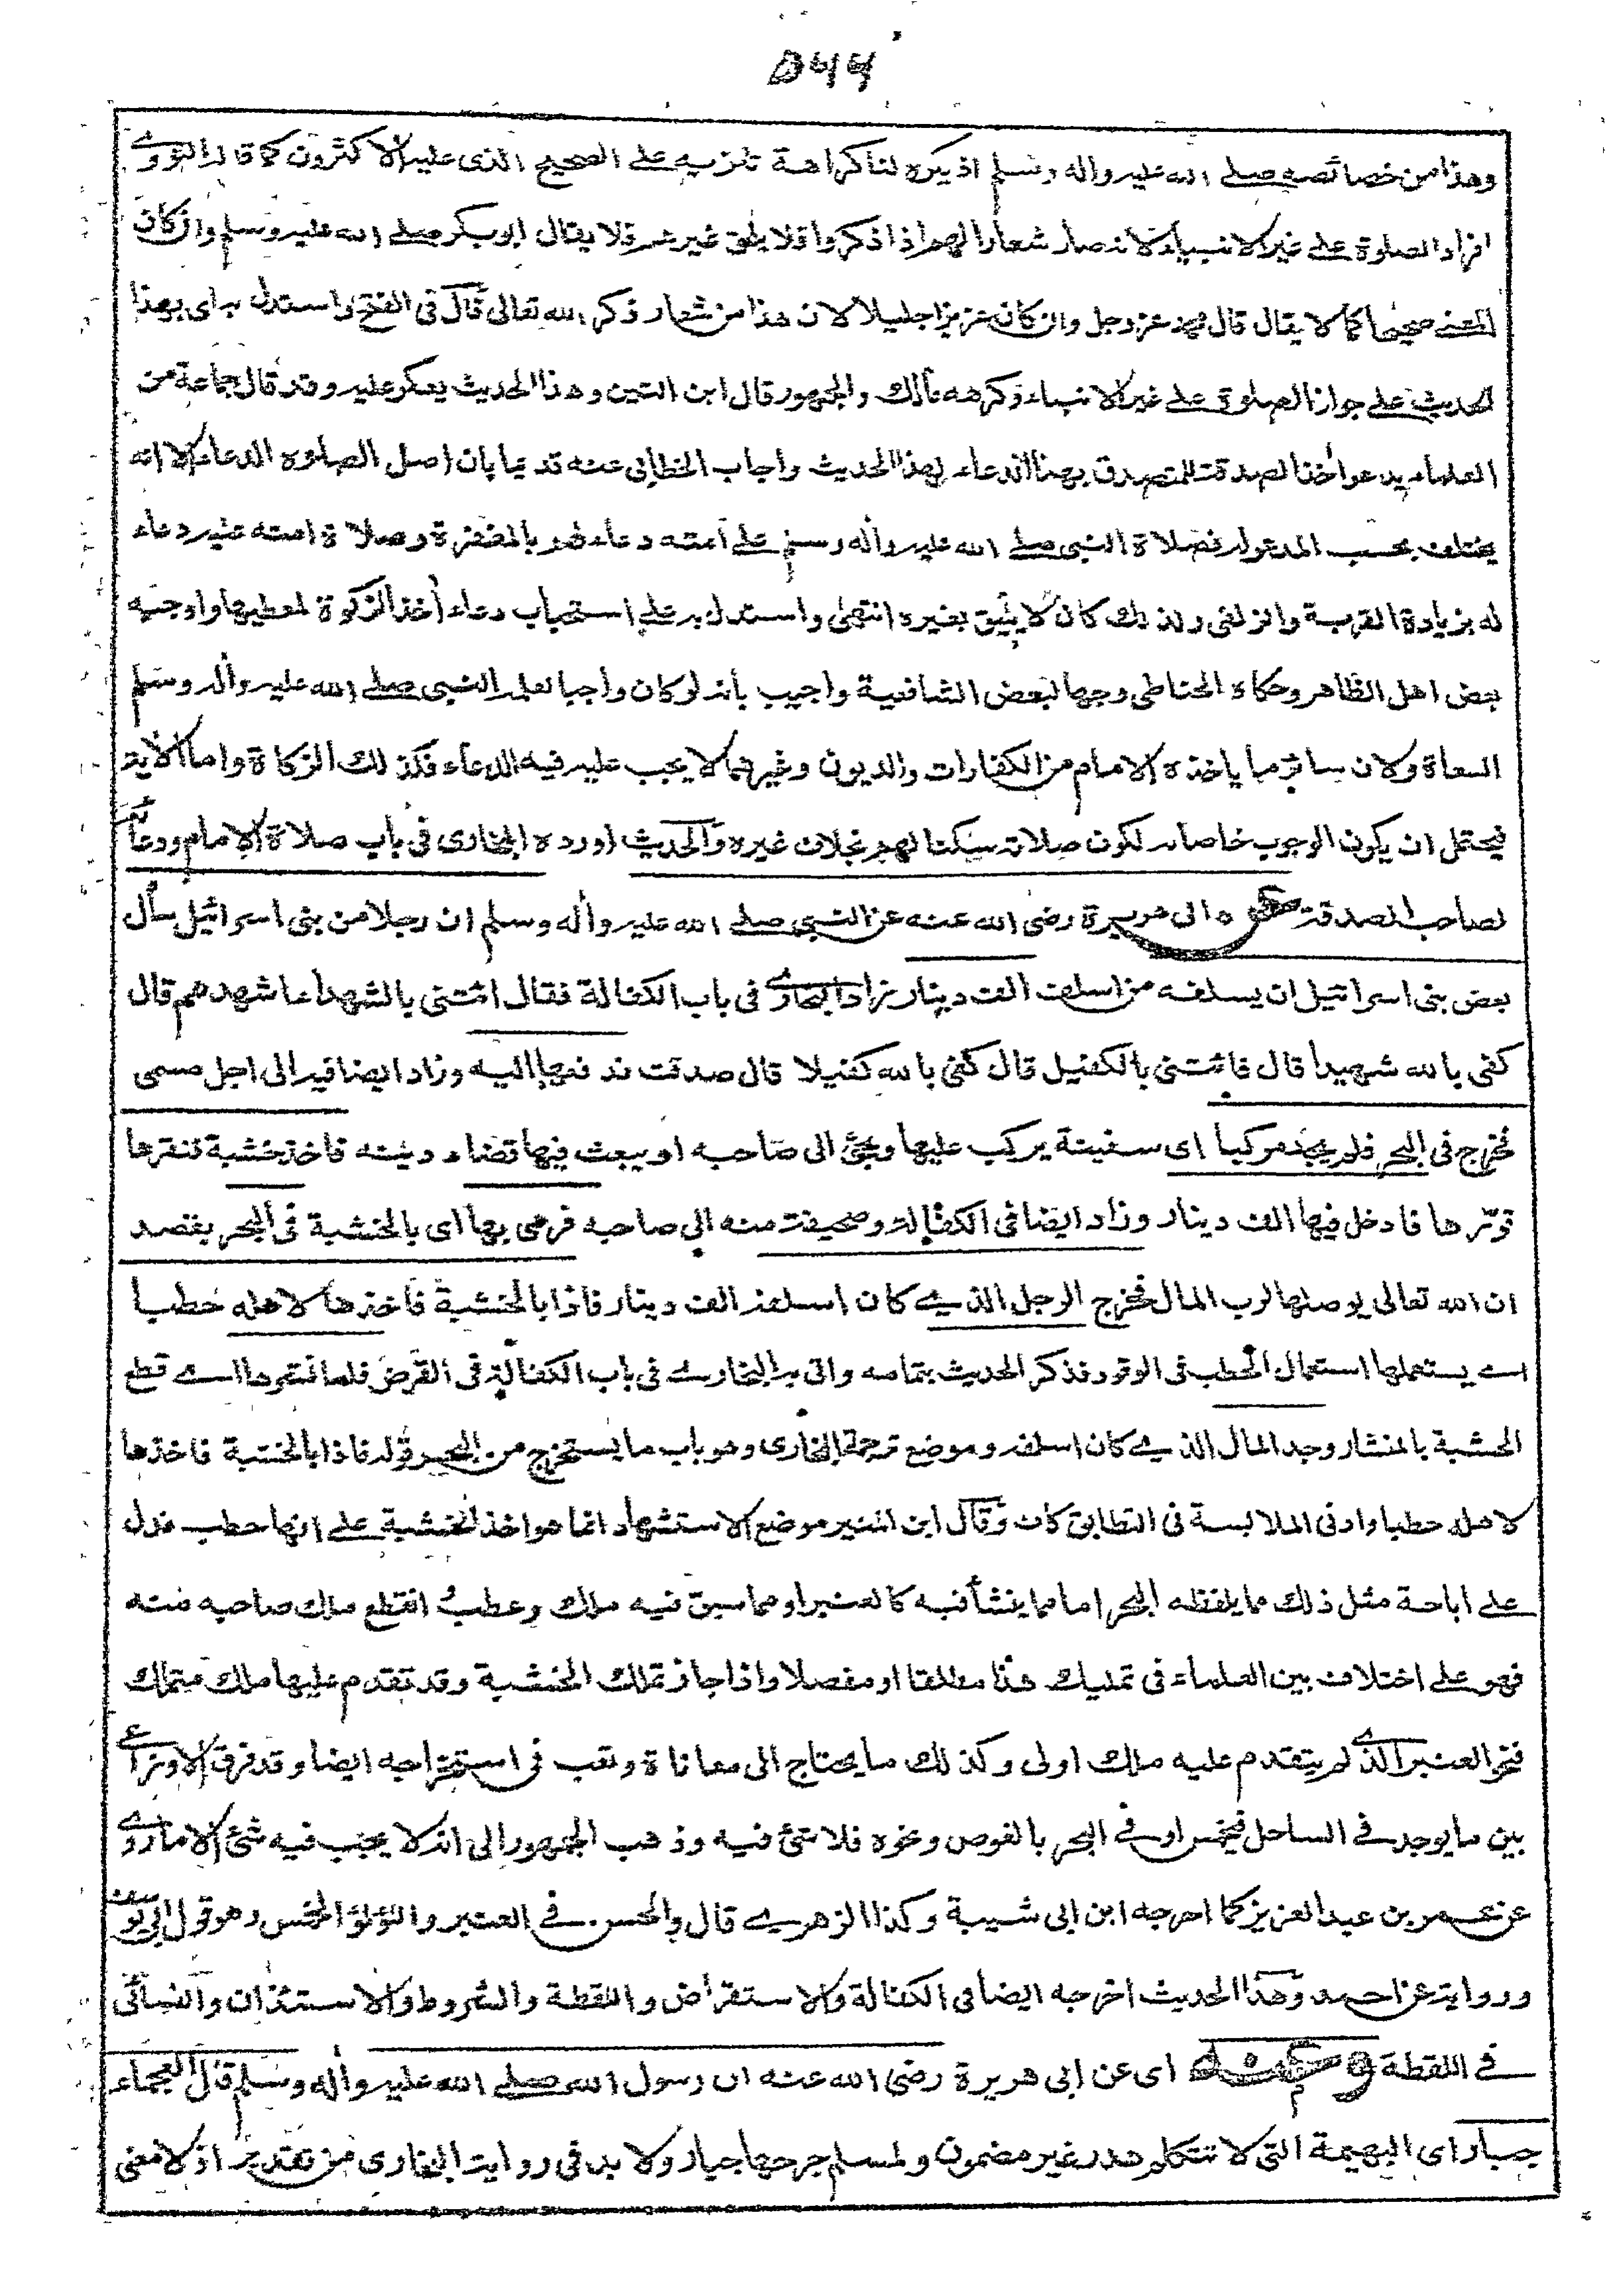 ٥٤٤
وهذا من خصائصه صلى الله عليه واله وسلم اذ يكره لنا كراهة تنزيه على الصحيح الذى عليه الاكثرون كما قاله النووى
افراد الصلوة على غير الانبياء لانه صار شعارا لهم اذا ذكروا فلا يلحق غيرهم فلا يقال ابو بكر صلى الله عليه وسلم وان كان
المعنى صحيحا كما لا يقال قال محمد عز وجل وان كان عزيزا جليلا لان هذا من شعار ذكر الله تعالى قال فى الفتح واستدل به اى بهذا
الحديث على جواز الصلوة على غير الانبياء وكرهه مالك والجمهور قال ابن التين وهذا الحديث يعكر عليه وقد قال جماعة من
العلماء يدعو اخذ الصدقة للمتصدق بهذا الدعاء لهذا الحديث واجاب الخطابى عنه قديما بان اصل الصلوة الدعاء الا انه
يختلف بحسب المدعو له فصلاة النبى صلى الله عليه واله وسلم على امته دعاء لهم بالمغفرة وصلاة امته عليه دعاء
له بزيادة القربة والزلفى ولذلك كان لا يليق بغيره انتهى واستدل به على استحباب دعاء أخذ الزكوة لمعطيها واوجبه
بعض اهل الظاهر وحكاه الحناطى وجها لبعض الشافعية واجيب بأنه لو كان واجبا لعلمه النبى صلى الله عليه واله وسلم
السعاة ولان سائر ما ياخذه الامام من الكفارات والديون وغيرهما لا يجب عليه فيه الدعاء فكذلك الزكاة واما الآية
فيحتمل ان يكون الوجوب خاصا به لكون صلاته سكنا لهم بخلاف غيره والحديث اورده البخارى فى باب صلاة الامام ودعائه
لصاحب الصدقة عن ابى هريرة رضى الله عنه عن النبى صلى الله عليه واله وسلم ان رجلا من بنى اسرائيل سأل
بعض بنى اسرائيل ان يسلفه من اسلف الف دينار زاد البخارى فى باب الكفالة فقال ائتنى بالشهداء اشهدهم قال
كفى بالله شهيدا قال فائتنى بالكفيل قال كفى بالله كفيلا قال صدقت فدفعها اليه وزاد ايضا فيه الى اجل مسمى
فخرج فى البحر فلم يجد مركبا اى سفينة يركب عليها ويجئ الى صاحبه او يبعث فيها قضاء دينه فاخذ خشبة فنقرها
قوّرها فادخل فيها الف دينار وزاد ايضا فى الكفالة وصحيفة منه الى صاحبه فرمى بها اى بالخشبة فى البحر بقصد
ان الله تعالى يوصلها لرب المال فخرج الرجل الذى كان اسلفه الف دينار فاذا بالخشبة فاخذها لاهله حطبا
اى يستعملها استعمال الحطب فى الوقود فذكر الحديث بتمامه واتى به البخارى فى باب الكفالة فى القرض فلما نشرها اى قطع
الخشبة بالمنشار وجد المال الذى كان اسلفه وموضع ترجمة البخارى وهو باب ما يستخرج من البحر قوله فاذا بالخشبة فاخذها
لاهله حطبا وادنى الملابسة فى التطابق كاف وقال ابن المنير موضع الاستشهاد انما هو اخذ الخشبة على انها حطب فدل
على اباحة مثل ذلك مما يلفظه البحر اما مما ينشأ فيه كالعنبر او مما سبق فيه ملك وعطب وانقطع ملك صاحبه منه
فهو على اختلاف بين العلماء فى تمليك هذا مطلقا او مفصلا واذا جاز تملك الخشبة وقد تقدم عليها ملك متملك
فنحو العنبر الذى لم يتقدم عليه ملك اولى وكذلك ما يحتاج الى معاناة وتعب فى استخراجه ايضا وقد فرق الاوزاعى
بين ما يوجد فى الساحل فيخمس او فى البحر بالغوص ونحوه فلا شئ فيه وذهب الجمهور الى انه لا يجب فيه شئ الا ما روى
عن عمر بن عبد العزيز كما اخرجه ابن ابى شيبة وكذا الزهرى قال والحسن فى العنبر واللؤلؤ الخمس وهو قول ابى يوسف
ورواية عن احمد وهذا الحديث اخرجه ايضا فى الكفالة والاستقراض واللقطة والشروط والاستئذان والنسائى
فى اللقطة وعنه اى عن ابى هريرة رضى الله عنه ان رسول الله صلى الله عليه واله وسلم قال العجماء
جبار اى البهيمة التى لا تتكلم هدر غير مضمون ولمسلم جرحها جبار ولا بد فى رواية البخارى من تقدير اذ لا معنى